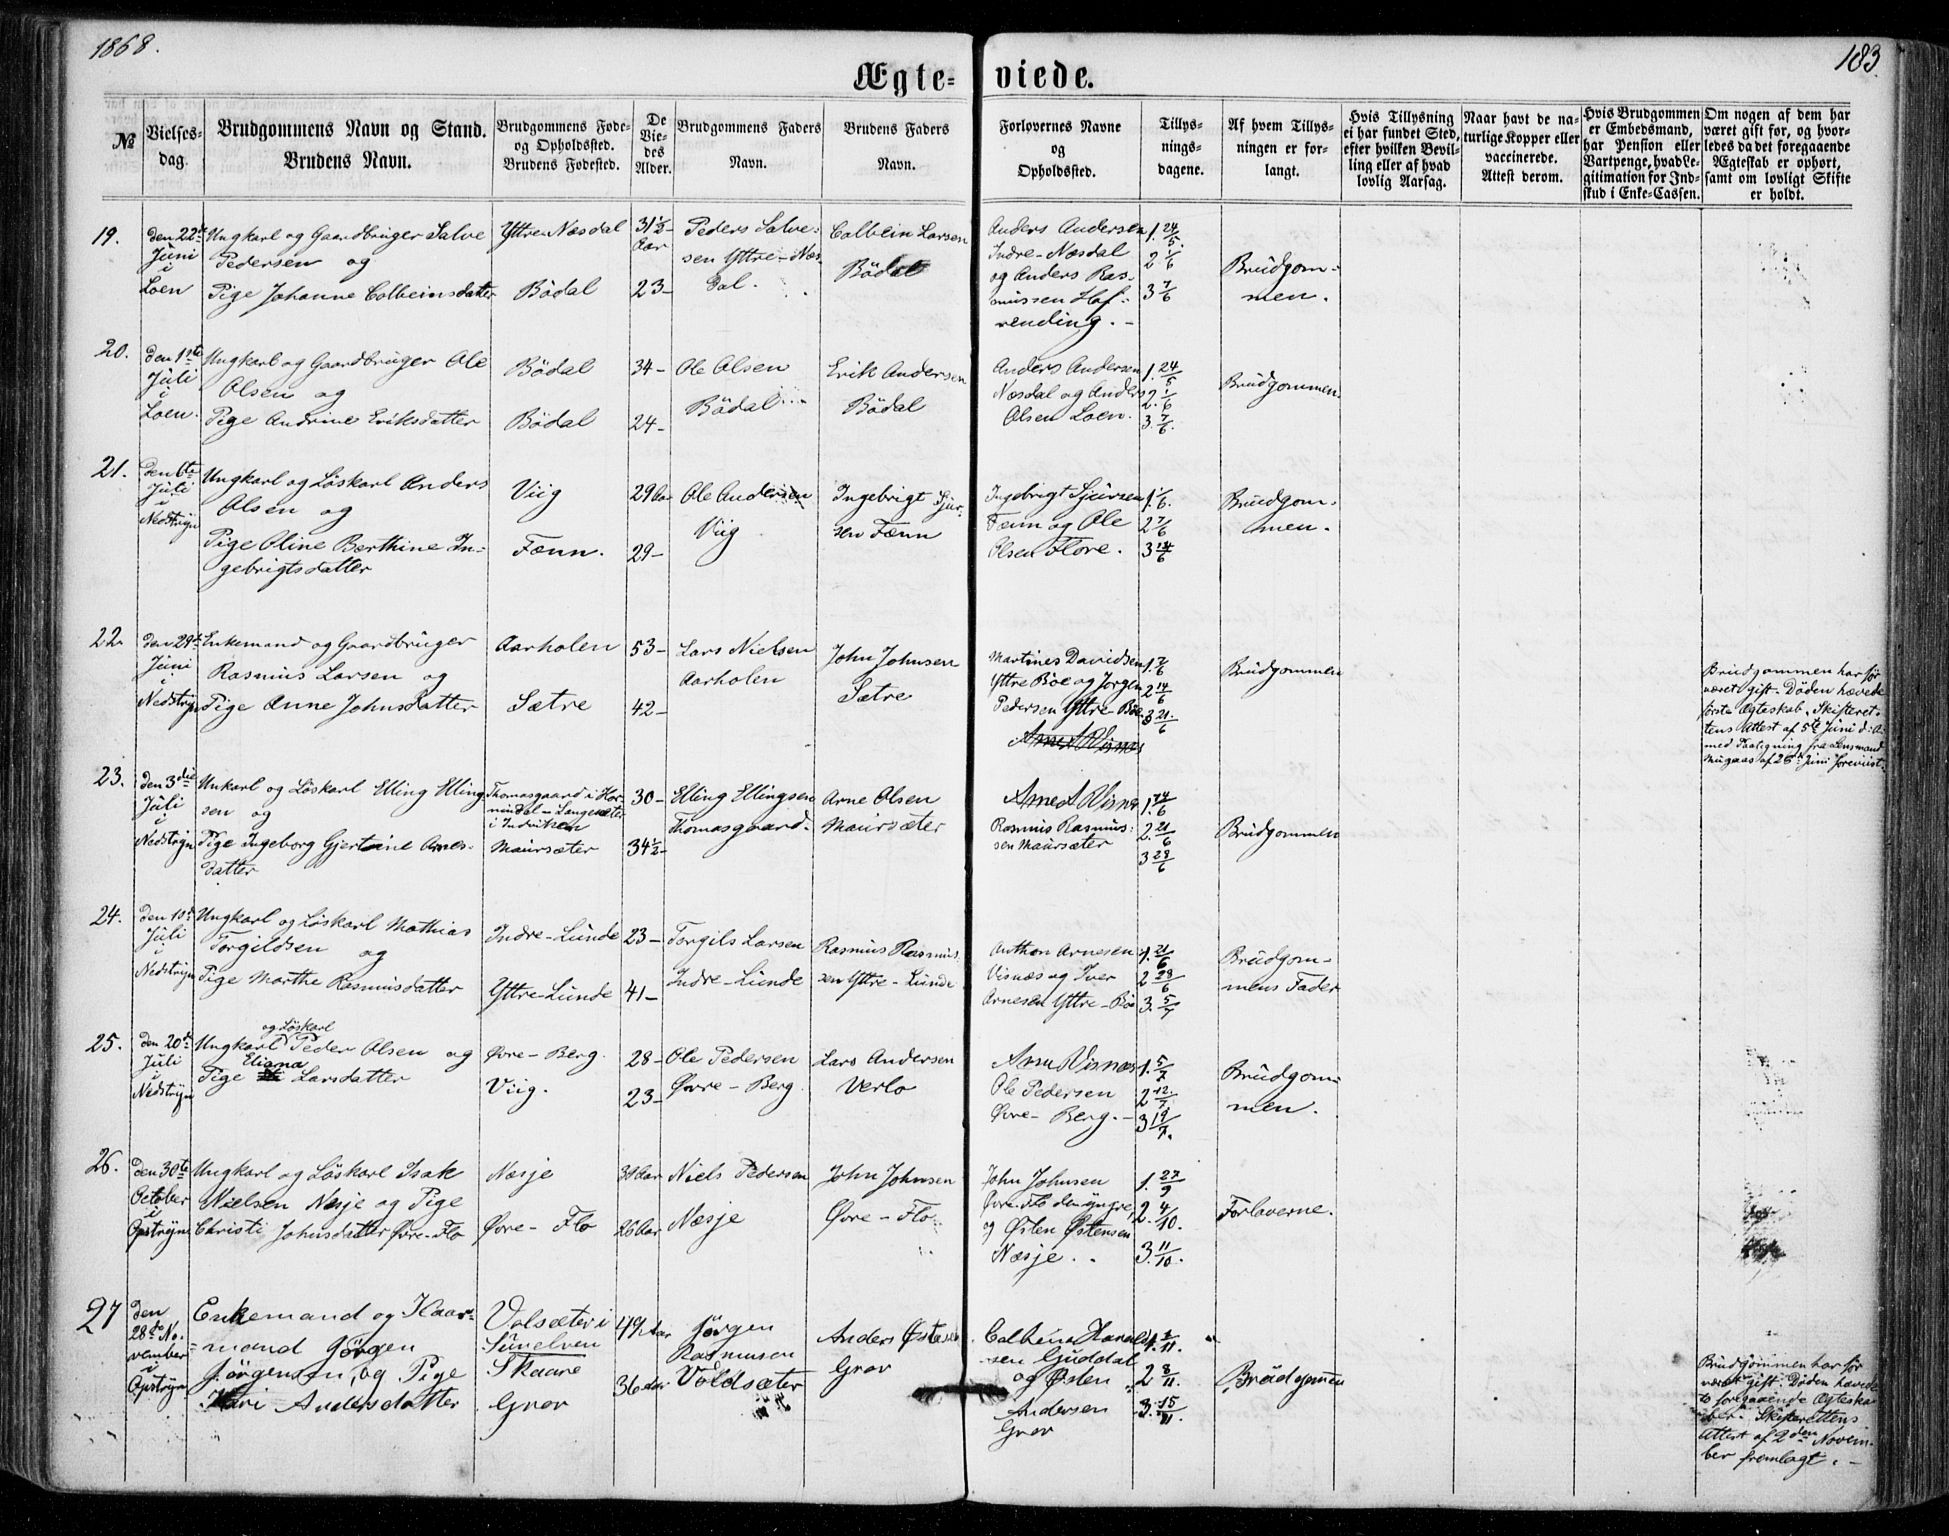 1868.
183.
Ægte- viede.
№
Vielses-
dag.
Brudgommens Navn og Stand.
Brudens Navn.
Brudgommens Føde-
og Opholdssted.
Brudens Fødested.
De
Vie-
des
Alder.
Brudgommens Faders
Navn.
Brudens Faders
Navn.
Forlovernes Navne
og
Opholdssted.
Tillys-
nings-
dagene.
Af hvem Tillys-
ningen er for-
langt.
Hvis Tillysning
ei har fundet Sted,
efter hvilken Bevil-
ling eller af hvad
lovlig Aarsag.
Naar havt de na-
turlige Kopper eller
vaccinerede.
Attest derom.
Hvis Brudgommen
er Embedsmand,
har Pension eller
Vartpenge, hvad Le-
gitimation for Ind-
skud i Enke-Cassen.
Om nogen af dem har
været gift før, og hvor-
ledes da det foregaaende
Ægteskab er ophørt,
samt om lovligt Skifte
er holdt.
19.
den 22de
Juni
i
Loen
Ungkarl og Gaardbruger Salve
Pedersen og
Pige Johanne Colbeinsdatter
Yttre Næsdal
Bödal
31½
Aar
23-
Peders Salve-
sen Yttre-Næs-
dal.
Colbein Larsen
Bödal
Anders Andersen
Indre-Næsdal
og Anders Ras-
mussen Haf-
vending.-
1. 24/5.
2 1/6
3 7/6
Brudgom-
men.
20.
den 1ste
Juli
i
Loen.
Ungkarl og Gaardbruger Ole
Olsen og
Pige Andrine Eriksdatter
Bödal
Bödal
34-
24-
Ole Olsen
Bödal
Erik Andersen
Bödal
Anders Andersen
Næsdal og Anders
Olsen Loen.
1. 24/5
2. 1/6
3. 7/6.
Brudgommen.
21.
den 6te
Juli
i
Nedstryn
Ungkarl og Löskarl Anders
Olsen og
Pige Oline Berthine In-
gebrigtsdatter
Viig
Fænn.
29 Aar
29-
Ole Andersen
Viig
Ingebrigt Sjur-
sen Fænn
Ingebrigt Sjursen
Fænn og Ole
Olsen Flore.
1 1/6.
2 7/6
3 14/6
Brudgom-
men.
22.
den 29de
Juni
i
Nedstryn
Enkemand og Gaardbruger
Rasmus Larsen og
Pige Anne Johnsdatter
Aarholen
Sætre
53-
42-
Lars Nielsen
Aarholen
John Johnsen
Sætre
Martines Davidsen
Yttre Böe og Jörgen
Pedersen Yttre Böe
Arne A Visnæs
1. 7/6
2 14/6
3 21/6
Brudgommen
Brudgommen har før
været gift. Döden hævede
første Ægteskab. Skifteret-
tens Attest af 5te Juni d: A:
med Paategning fra Lensmand
Mugaas af 26de Juni foreviist.
23.
den 3die
Juli
i
Nedstryn
Unkarl og Löskarl Elling Elling-
sen og
Pige Ingeborg Gjertine Arnes-
datter
Thomasgaard i Hor-
nindal - Langesæter
i Indviken
Maursæter
30-
34½-
Elling Ellingsen
Thomasgaard.
Arne Olsen
Maursæter
Arne A Visnæs
Rasmus Rasmus-
sen Maursæter
1. 14/6
2. 21/6
3 28/6
Brudgommen
24.
den 10de
Juli
i
Nedstryn
Ungkarl og Löskarl Mathias
Torgildsen og
Pige Marthe Rasmusdatter
Indre-Lunde
Yttre-Lunde
23-
41-
Torgils Larsen
Indre-Lunde
Rasmus Rasmus-
sen Yttre-Lunde
Anthon Arnesen
Visnæs og Iver
Arnesen Yttre-Böe
1. 21/6
2 28/6
3. 5/7
Brudgom-
mens Fader
25.
den 20de
Juli
i
Nedstryn
og Löskarl
Ungkarl Peder Olsen og
Eliana
Pige Larsdatter
Øvre-Berg.
Viig.
28-
23-
Ole Pedersen
Øvre-Berg.
Lars Andersen
Verlo
Arne Visnæs
Ole Pedersen
Øvre-Berg.-
1. 5/7
2 12./7
3 19/7.
Brudgom-
men.
26.
den 30te
October
i
Opstryn
Ungkarl og Löskarl Isak
Nielsen Nesje og Pige
Christi Johnsdatter Øvre-Flo
Nesje
Øvre-Flo
Aar
26 Aar
Niels Pedersen
Nesje
John Johnsen
Øvre-Flo
John Johnsen
Øvre-Flo den yngre,
og Østen Østensen
Nesje.
1. 27/9
2. 4/10.
3. 11/10.
Forloverne.
27
den
28de No-
vember
i
Opstryn.
Enkemand og Kaar-
mand Jörgen
Jörgensen, og Pige
Kari Andersdatter
Volsæter i
Sunelven
Skaare
Grov
49 Aar
36 Aar
Jörgen
Rasmusen
Voldsæter
Anders Østensen
Grov
Colbein Harald-
sen Guddal
og Østen
Andersen
Grov
1. 1/11.
2 8/11.
3. 15/11.
Brudgommen
Brudgommen har før
været gift. Döden hævede
to foregaaende Ægteska-
ber. Skifterettens
Attest af 2den Novem-
ber fremlagt.-